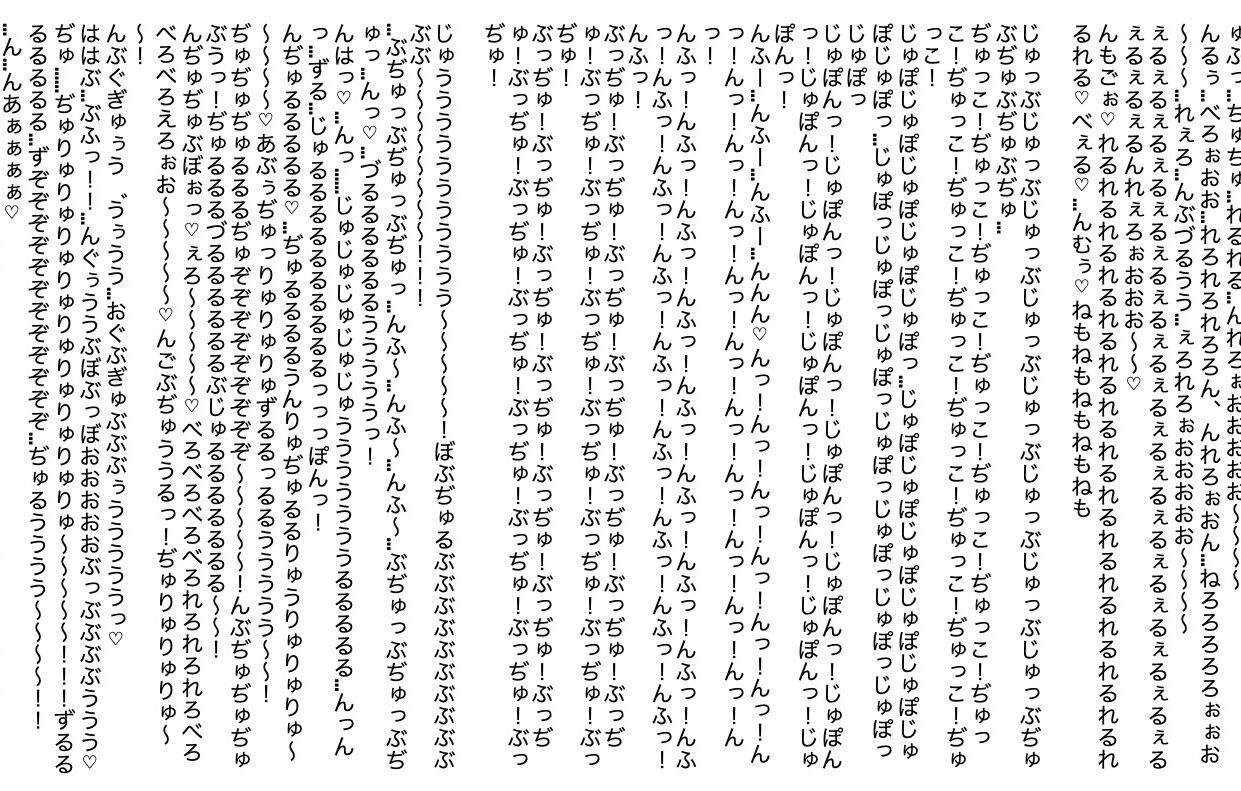 ゅぶっ…ちゅちゅ…れるれる…んれろぉおおおお～～～～
んるぅ…べろぉおお…れろれろれろろん、んれろぉおん…ねろろろろろぉぉお
～～～…れぇろ…んぶづるうう…ぇろれろぉおおおおお～～～～
えるぇるぇるぇるぇるぇるぇるぇるぇるぇるぇるぇるぇるぇるぇるぇるぇる
ぇるぇるぇるんれぇろぉおおお～～♡
んもごぉ♡れるれるれるれるれるれるれるれるれるれるれるれるれるれるれ
るれる♡べぇる♡…んむぅ♡ねもねもねもねもねも
じゅっぶじゅっぶじゅっぶじゅっぶじゅっぶじゅっぶじゅっぶじゅっぶぢゅ
ぶぢゅぶぢゅぶぢゅ…
ぢゅっこ！ぢゅっこ！ぢゅっこ！ぢゅっこ！ぢゅっこ！ぢゅっこ！ぢゅっ
こ！ぢゅっこ！ぢゅっこ！ぢゅっこ！ぢゅっこ！ぢゅっこ！ぢゅっこ！ぢゅ
っこ！
じゅぽじゅぽじゅぽじゅぽじゅぽっ…じゅぽじゅぽじゅぽじゅぽじゅぽじゅ
ぽじゅぽっ…じゅぽっじゅぽっじゅぽっじゅぽっじゅぽっじゅぽっじゅぽっ
じゅぽっ
じゅぽんっ！じゅぽんっ！じゅぽんっ！じゅぽんっ！じゅぽんっ！じゅぽん
っ！じゅぽんっ！じゅぽんっ！じゅぽんっ！じゅぽんっ！じゅぽんっ！じゅ
ぽんっ！
んふー…んふー…んふー…んんん♡んっ！んっ！んっ！んっ！んっ！んっ！ん
っ！んっ！んっ！んっ！んっ！んっ！んっ！んっ！んっ！んっ！んっ！ん
っ！
んふっ！んふっ！んふっ！んふっ！んふっ！んふっ！んふっ！んふっ！んふ
っ！んふっ！んふっ！んふっ！んふっ！んふっ！んふっ！んふっ！んふっ！
んふっ！
ぶっぢゅ！ぶっぢゅ！ぶっぢゅ！ぶっぢゅ！ぶっぢゅ！ぶっぢゅ！ぶっぢ
ゅ！ぶっぢゅ！ぶっぢゅ！ぶっぢゅ！ぶっぢゅ！ぶっぢゅ！ぶっぢゅ！ぶっ
ぢゅ！
ぶっぢゅ！ぶっぢゅ！ぶっぢゅ！ぶっぢゅ！ぶっぢゅ！ぶっぢゅ！ぶっぢ
ゅ！ぶっぢゅ！ぶっぢゅ！ぶっぢゅ！ぶっぢゅ！ぶっぢゅ！ぶっぢゅ！ぶっ
ぢゅ！
じゅうううううううううううう～～～～～！ぼぶぢゅるぶぶぶぶぶぶぶぶぶ
ぶぶ～～～～～～～～！！！
…ぶぢゅっぶぢゅっぶぢゅっ…んふ～…んふ～…んふ～…ぶぢゅっぶぢゅっぶぢ
ゅっ…んっ♡…づるるるるるるううううっ！
んはっ♡…んっ……じゅじゅじゅじゅじゅうううううううるるるるる…んっん
っ…ずる…じゅるるるるるるるるるっっっぽんっ！
んぢゅるるるるる♡…ぢゅるるるるるうんりゅぢゅるるりゅうりゅりゅりゅ～
～～～～♡あぶぅぢゅっりゅりゅりゅずるるっるるううううう～～～！
ぢゅぢゅぢゅるるるぢゅぞぞぞぞぞぞぞぞぞ～～～～～！んぶぢゅぢゅぢゅ
ぶうっ！ぢゅるるるづるるるるるるるぶじゅるるるるるるる～～！
んぢゅぢゅぶぼぉっ♡ぇろ～～～～～～♡べろべろべろべろれろれろれろべろ
べろべろえろぉお～～～～～～♡んごぶぢゅううるっ！ぢゅりゅりゅりゅ～
～！
んぶぐぎゅぅう゛うぅうう…おぐぶぎゅぶぶぶぅううううううっ♡
ははぶ…ぶふっ！！…んぐぅううぶぼぶっぼおおおおおぶっぶぶぶぶううう♡
ぢゅ……ぢゅりゅりゅりゅりゅりゅりゅりゅりゅりゅ～～～～～～！！！ずるる
るるるるる…ずぞぞぞぞぞぞぞぞぞぞぞぞぞぞ…ぢゅるうううう～～～～～！！
…ん…んあぁぁぁぁ♡